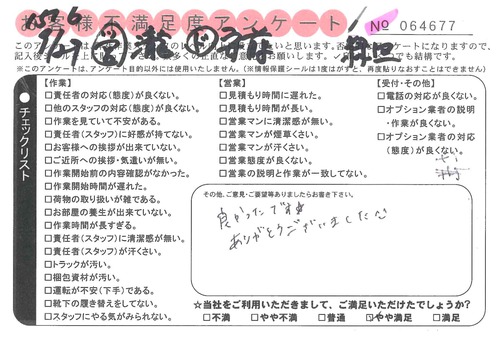 お客様不満足度アンケート
No 064677
※このアンケートは、アンケート目的以外には使用いたしません。（※情報保護シールは1度はがすと、再度貼りなおすことはできません）
チェックリスト
【作業】
□責任者の対応（態度）が良くない。
□他のスタッフの対応（態度）が良くない。
□作業を見ていて不安がある。
□責任者（スタッフ）に好感が持てない。
□お客様への挨拶が出来ていない。
□ご近所への挨拶・気遣いが無い。
□作業開始前の内容確認がなかった。
□作業開始時間が遅れた。
□荷物の取り扱いが雑である。
□お部屋の養生が出来ていない。
□作業時間が長すぎる。
□責任者（スタッフ）に清潔感が無い。
□責任者（スタッフ）が汗くさい。
□トラックが汚い。
□梱包資材が汚い。
□運転が不安（下手）である。
□靴下の履き替えをしてない。
□スタッフにやる気がみられない。
【営業】
□見積もり時間に遅れた。
□見積もり時間が長い。
□営業マンに清潔感が無い。
□営業マンが煙草くさい。
□営業マンが汗くさい。
□営業態度が良くない。
□営業の説明と作業が一致してない。
【受付・その他】
□電話の対応が良くない。
□オプション業者の説明
・作業が良くない。
□オプション業者の対応
（態度）が良くない。
その他、ご意見・ご要望等ありましたらお書き下さい。
良かったです
ありがとうございました
☆当社をご利用いただきまして、ご満足いただけたでしょうか？
□不満 □やや不満 □普通 ☑やや満足 □満足